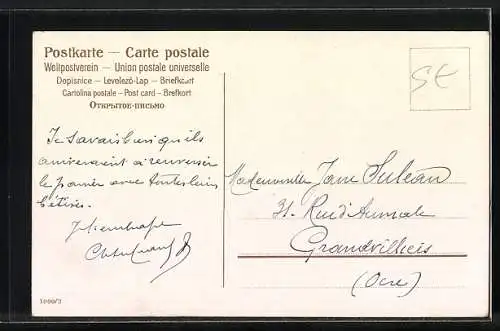 Postkarte — Carte postale
Weltpostverein — Union postale universelle
Dopisnice — Levelező-Lap — Briefkaart
Cartolina postale — Post card — Brefkort
Открытое письмо
Je savais bien qu'ils
arriveraient à renverser
le panier avec toutes leurs
bêtises.
Mademoiselle Jane Suleau
31. Rue d'Aumale
Grandvilliers
(Oise)
1060/2